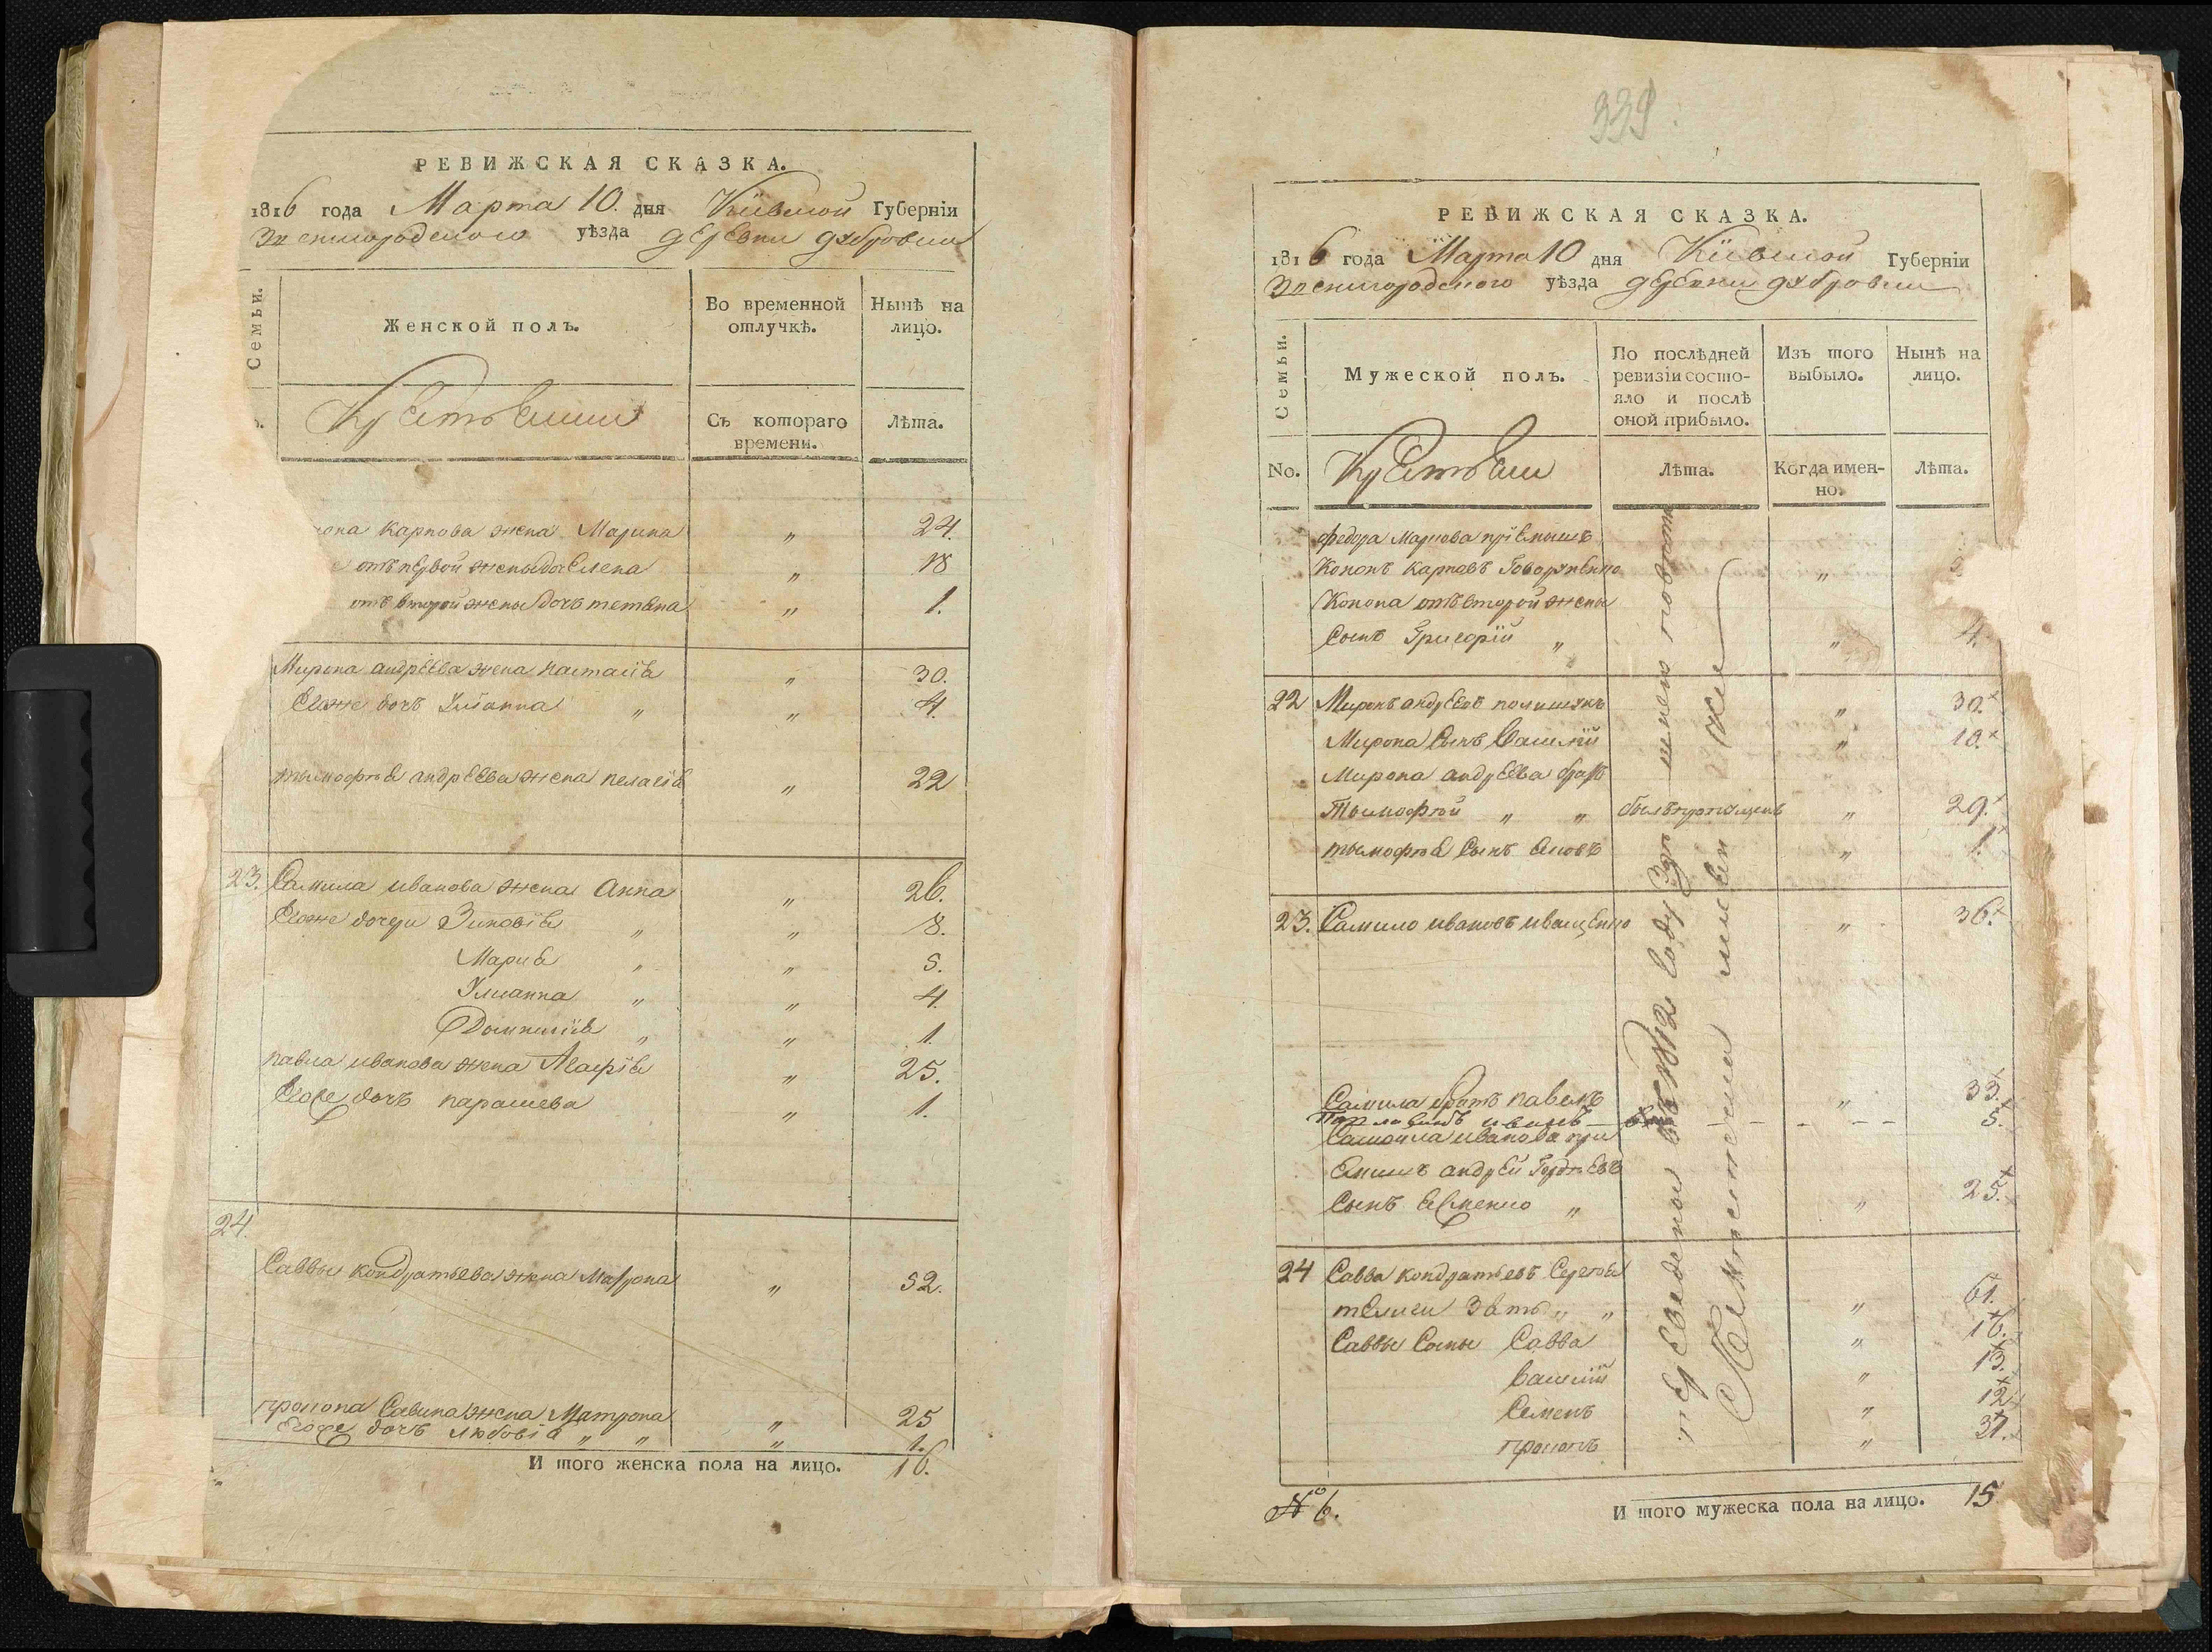 РЕВИЖСКАЯ СКАЗКА.
1816 года Марта 10. дня Кіевской Губерніи
Звенигородского уѣзда деревни дубровки
Семьи.
Женской полъ.
Во временной отлучкѣ.
Нынѣ на лицо.
Крестьянки
Съ котораго времени.
Лѣта.
Карпова жена Марина " 24.
отъ первой жены доч Елена " 18
отъ второй жены дочь татяна " 1.
Мирона андрѣева жена настасія " 30.
Егоже дочь Улианна " " 4.
тымофѣя андрѣева жена пелагія " 22
23. Самила иванова жена анна " 26.
Егоже дочери Зиновія " " 8.
Мария " " 5.
Улианна " " 4.
Домникия " " 1.
павла иванова жена Агафія " 25.
Егоже дочь парашева " 1.
24.
Саввы кондратьева жена Матрона " 52.
прокопа Савина жена Матрона " 25
Егоже дочь любовія " " " 1.
И того женска пола на лицо. 16.
339.
РЕВИЖСКАЯ СКАЗКА.
1816 года Марта 10 дня Кіевской Губерніи
Звенигородского уѣзда деревни дубровки
Семьи.
Мужеской полъ.
По послѣдней ревизіи состояло и послѣ оной прибыло.
Изъ того выбыло.
Нынѣ на лицо.
No.
Крестьяне
Лѣта.
Когда именно.
Лѣта.
федора Маркова пріемышъ
Кононъ карповъ Говоруненко "
Конона отъ второй жены
Сынъ Григорій " " 4.
22 Миронъ андрѣевъ полишукъ " 30.
Мирона Сынъ Василій " 10.
Мирона андрѣева братъ
Тымофѣй " " былъ пропущенъ " 29.
тымофѣя Сынъ Яковъ " 1.
23. Самило ивановъ иващенко " 36.
Самила братъ павелъ " 33.
иванъ 5.
Самоила иванова при
емишъ андрей Гордѣевъ
Сынъ Ясменко " " 25.
24 Савва кондратьевъ Сергѣя
телиги Зять " " " 61.
Саввы Сыны Савва " 16.
Василій " 13.
Семенъ " 12
прокопъ " 31.
переведены въ 1812 году
№ 6.
И того мужеска пола на лицо. 15